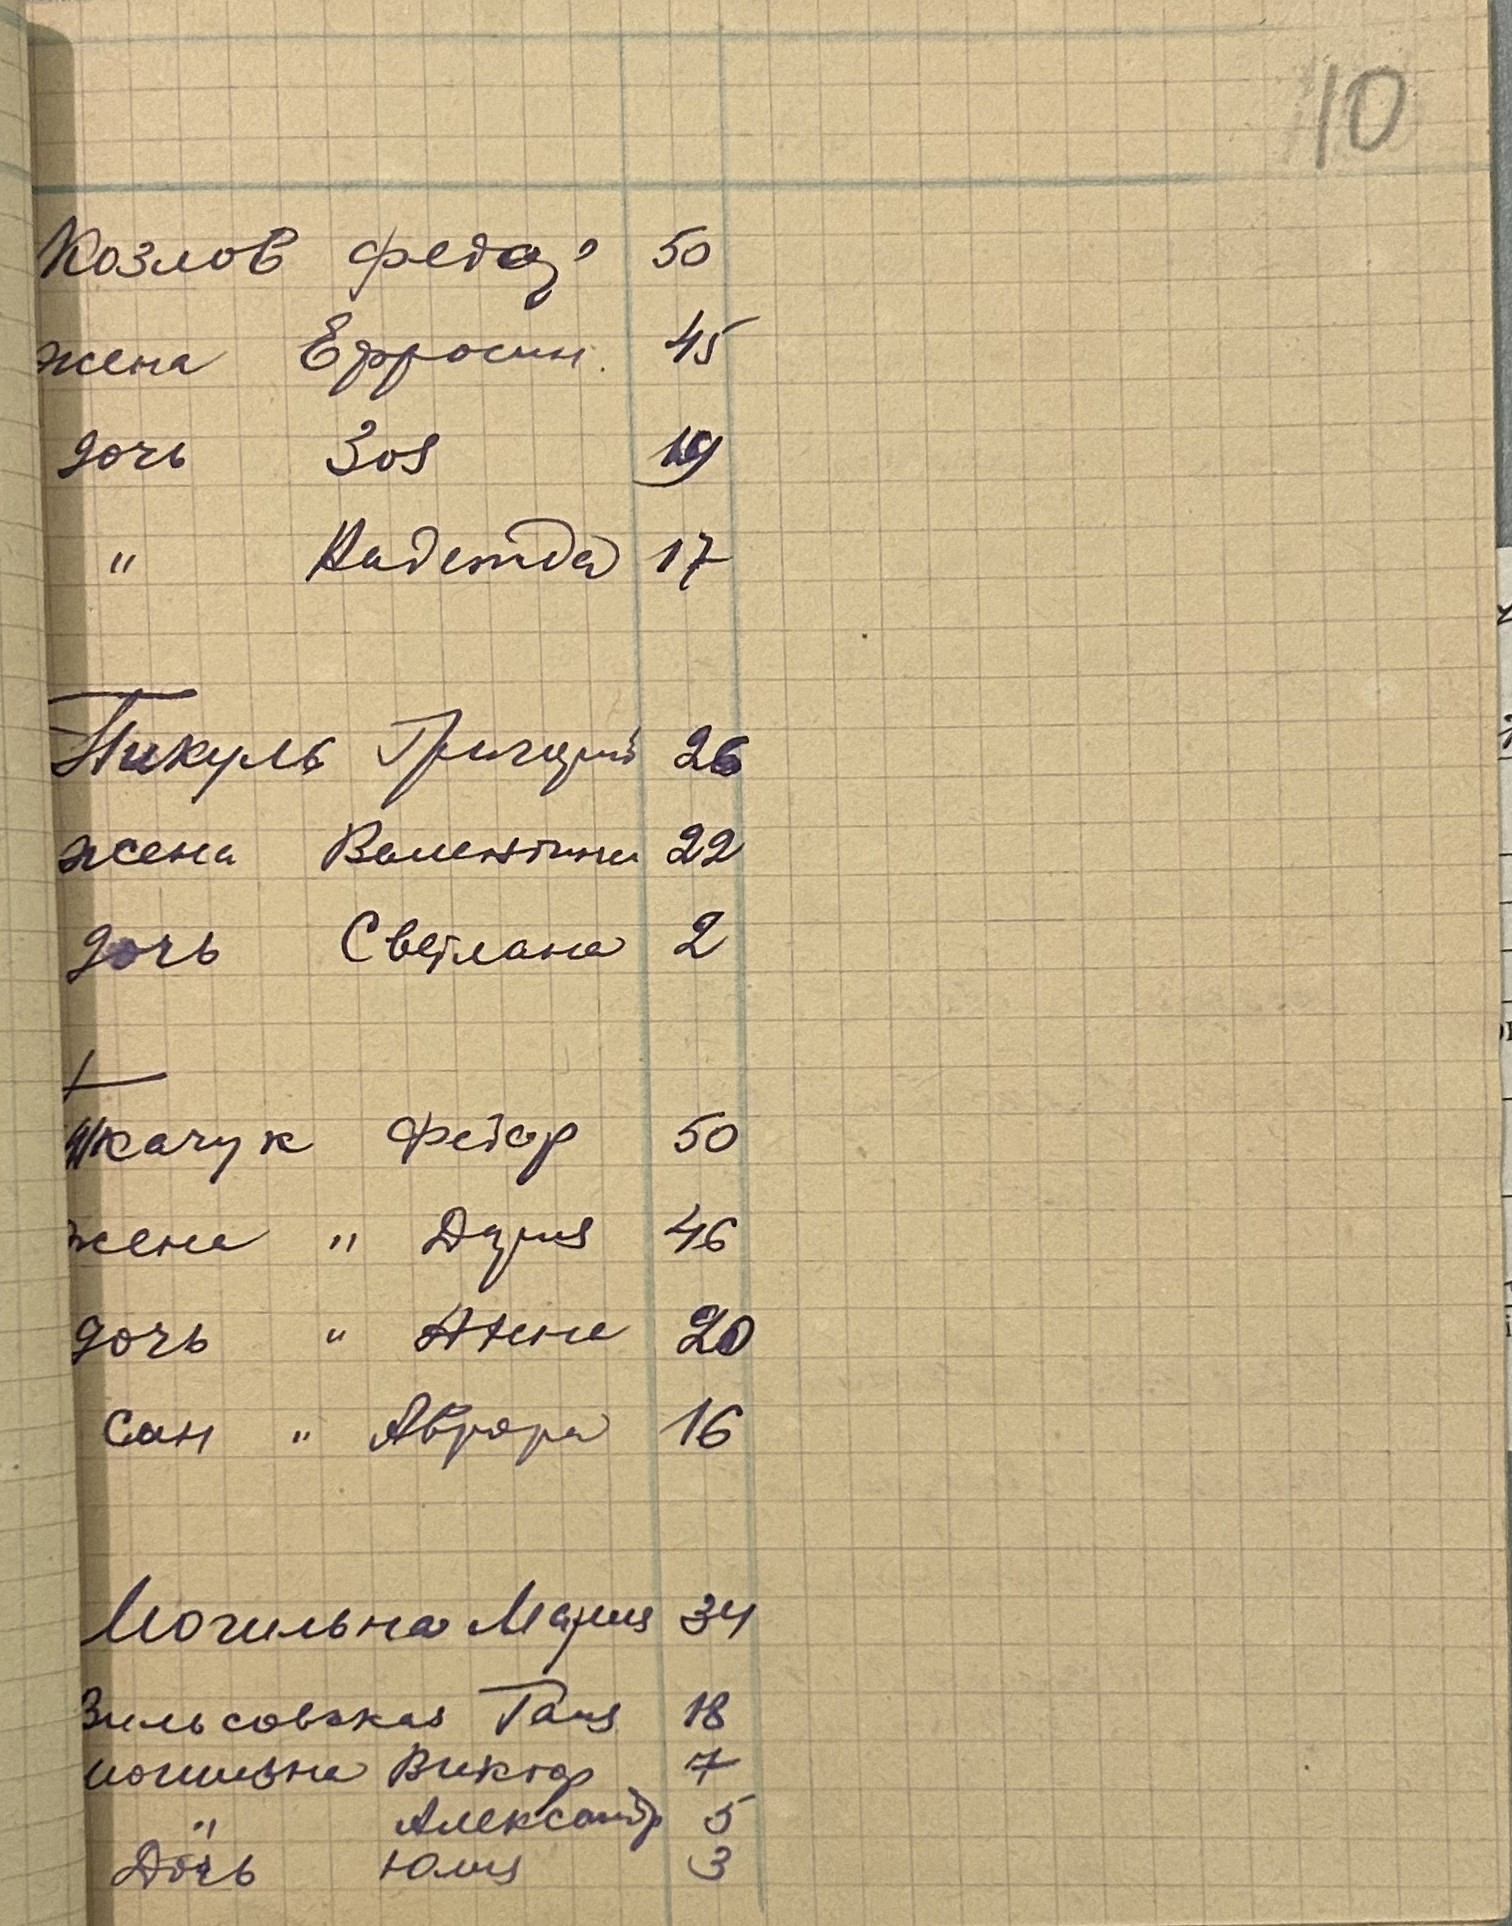 10
Козлов Федор 50
жена Ефросин. 45
дочь Зоя 19
" Надежда 17
Пикуль Григорий 26
жена Валентина 22
дочь Светлана 2
Ткачук Федор 50
жена " Дария 46
дочь " Анна 20
сан " Аврора 16
Могильна Мария 34
Таня 18
Могильна Виктор 7
" Александр 5
Дочь Юлия 3